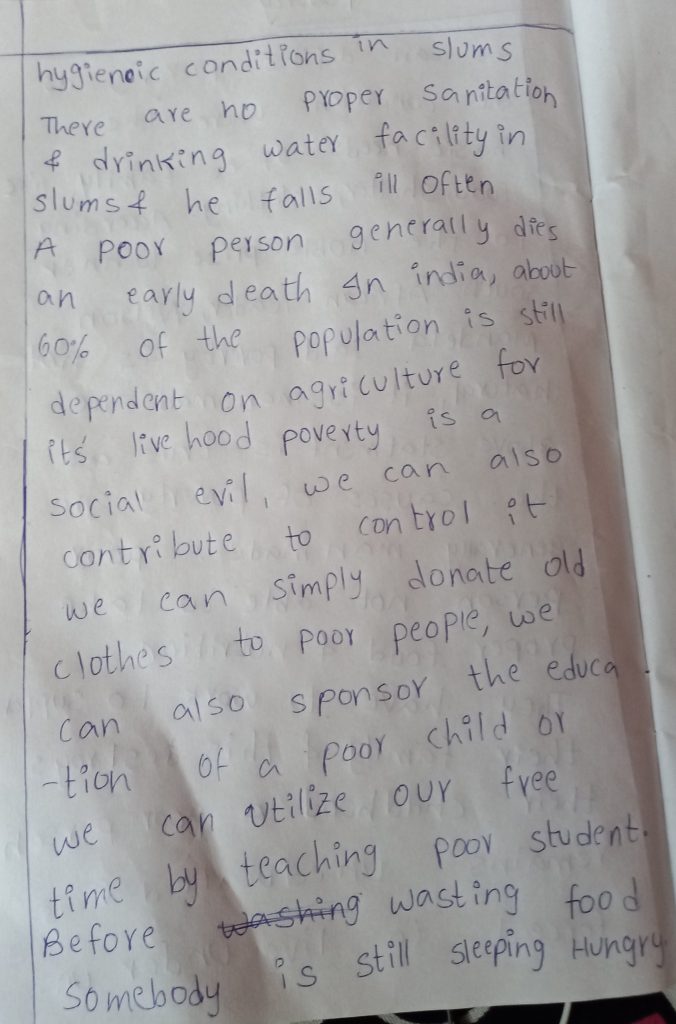 hygieneic conditions in slums
There are no proper sanitation
& drinking water facility in
slums & he falls ill often
A poor person generally dies
an early death In india, about
60% of the population is still
dependent on agriculture for
its' live hood poverty is a
social evil, we can also
contribute to control it
we can simply donate old
clothes to poor people, we
can also sponsor the educa
-tion of a poor child or
we can utilize our free
time by teaching poor student.
Before washing wasting food
Somebody is still sleeping Hungry